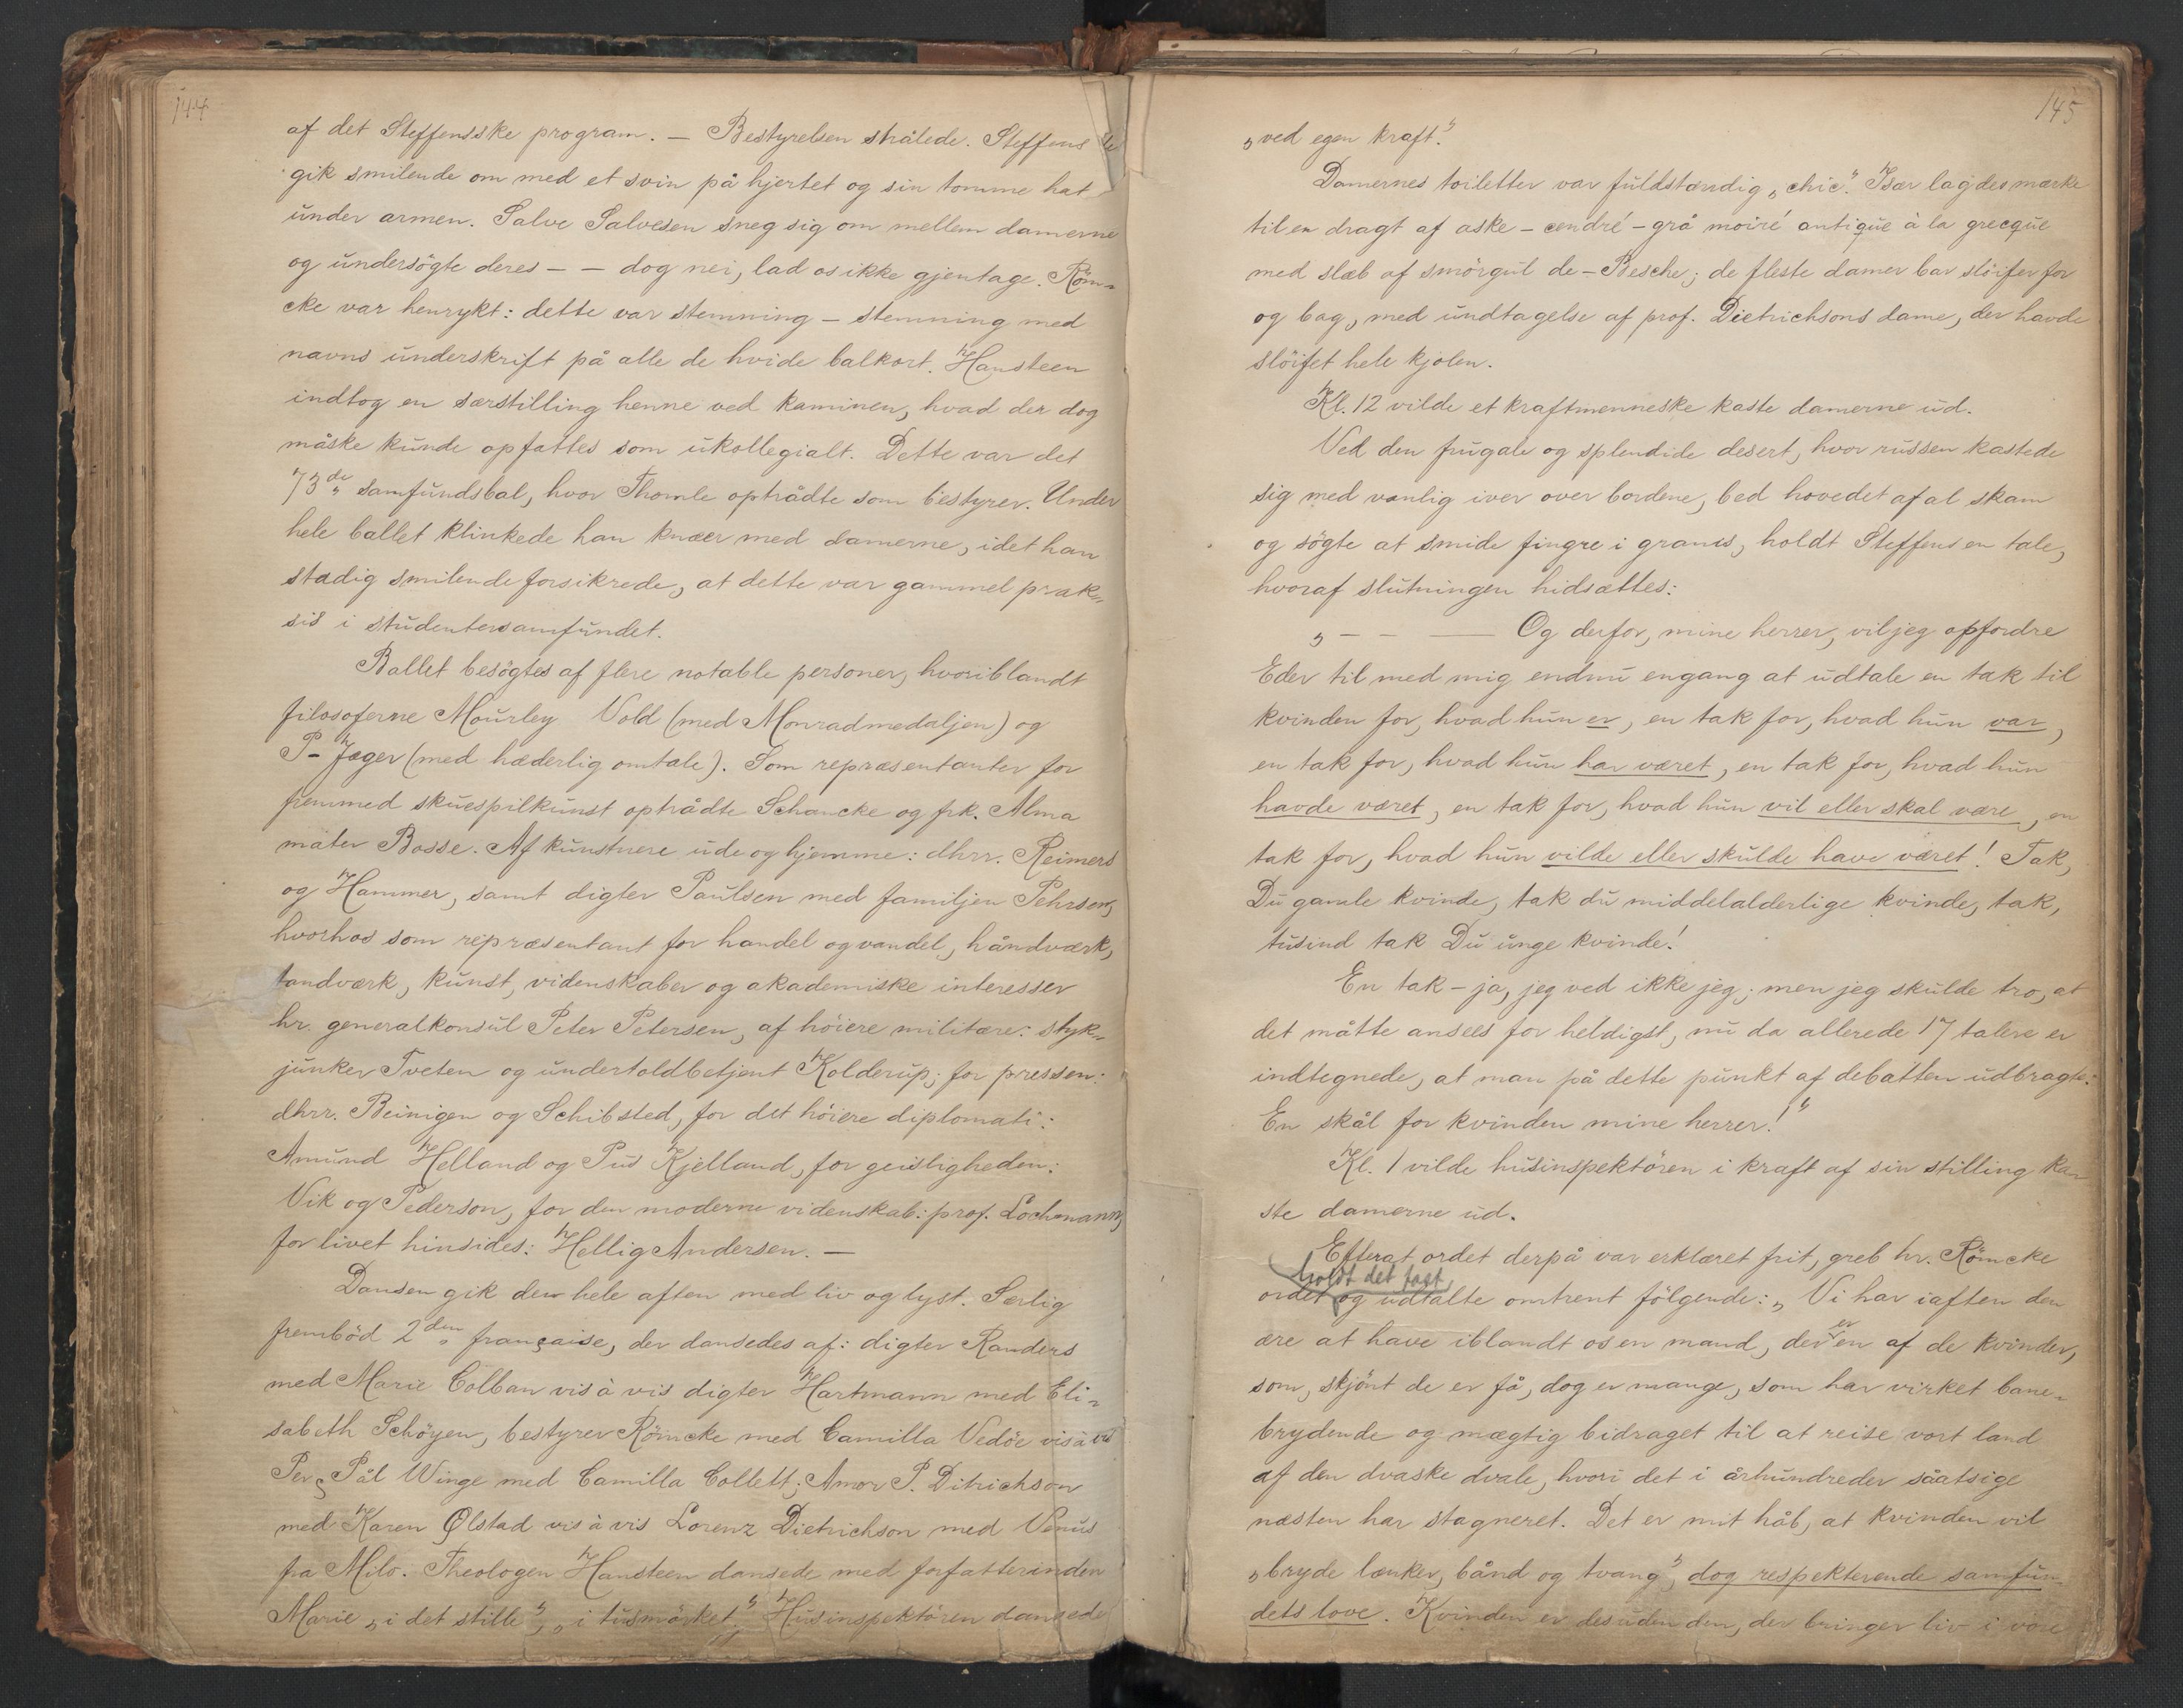 144
af det Steffensske program. — Bestyrelsen strålede. Steffens
gik smilende om med et svin på hjertet og sin tomme hat
under armen. Salve Salvesen sneg sig om mellem damerne
og undersögte deres — — dog nei, lad os ikke gjentage. Röm-
cke var henrykt: dette var stemning — stemning med
navns underskrift på alle de hvide balkort. Hansteen
indtog en særstilling henne ved kaminen, hvad der dog
måske kunde opfattes som ukollegialt. Dette var det
73de samfundsbal, hvor Thomle optrådte som bestyrer. Under
hele ballet klinkede han knæer med damerne, idet han
stadig smilende forsikrede, at dette var gammel prak-
sis i studentersamfundet.
Ballet besögtes af flere notable personer, hvoriblandt
filosoferne Mourley Vold (med Monradmedaljen) og
P- Jæger (med hæderlig omtale). Som repræsentanter for
fremmed skuespilkunst optrådte Schancke og frk. Alma
mater Bosse. Af kunstnere ude og hjemme: dhrr. Reimers
og Hammer, samt digter Paulsen med familjen Pehrsen,
hvorhos som repræsentant for handel og vandel, håndværk,
tandværk, kunst, videnskaber og akademiske interesser
hr. generalkonsul Peter Petersen, af höiere militære: styk-
junker Tveten og undertoldbetjent Kolderup; for pressen:
dhrr. Beinigen og Schibsted, for det höiere diplomati:
Amund Helland og Pus Kjelland, for geistligheden:
Vik og Pederson, for den moderne videnskab: prof. Lochmann,
for livet hinsides: Hellig Andersen. —
Dansen gik den hele aften med liv og lyst. Særlig
fremböd 2den française, der dansedes af: digter Randers
med Marie Colban vis à vis digter Hartmann med Eli-
sabeth Schöyen, bestyrer Römcke med Camilla Vedöe vis à vis
Per Pål Winge med Camilla Collett; Amor P. Ditrichson
med Karen Ølstad vis à vis Lorenz Dietrichson med Venus
fra Milo. Theologen Hansteen dansede med forfatterinden
Marie „i det stille“, „i tusmörket.“ Husinspektören dansede
145
„ved egen kraft.“
Damernes toiletter var fuldstændig „chic.“ Især lagdes mærke
til en dragt af aske – cendré – grå moiré antique à la grecque
med slæb af smörgul de – Besche; de fleste damer bar slöifer for
og bag, med undtagelse af prof. Dietrichsons dame, der havde
slöifet hele kjolen.
Kl. 12 vilde et kraftmenneske kaste damerne ud.
Ved den frugale og splendide desert, hvor russen kastede
sig med vanlig iver over bordene, bed hovedet af al skam
og sögte at smide fingre i granes, holdt Steffens en tale,
hvoraf slutningen hidsættes:
„ – – — Og derfor, mine herrer, vil jeg opfordre
Eder til med mig endnu engang at udtale en tak til
kvinden for, hvad hun er, en tak for, hvad hun var,
en tak for, hvad hun har været, en tak for, hvad hun
havde været, en tak for, hvad hun vil eller skal være, en
tak for, hvad hun vilde eller skulde have været! Tak,
Du gamle kvinde, tak du middelalderlige kvinde, tak,
tusind tak Du unge kvinde!
En tak – ja, jeg ved ikke jeg; men jeg skulde tro, at
det måtte ansees for heldigst, nu da allerede 17 talere er
indtegnede, at man på dette punkt af debatten udbragte:
En skål for kvinden mine herrer!“
Kl. 1 vilde husinspektören i kraft af sin stilling ka-
ste damerne ud.
Efterat ordet derpå var erklæret frit, greb hr. Römcke
holdt det fast
ordet og udtalte omtrent fölgende: „Vi har iaften den
ære at have iblandt os en mand, der er en af de kvinder,
som, skjönt de er få, dog er mange, som har virket bane-
brydende og mægtig bidraget til at reise vort land
af den dvaske dvale, hvori det i århundreder såatsige
næsten har stagneret. Det er mit håb, at kvinden vil
„bryde lænker, bånd og tvang“, dog respekterende samfun-
dets love. Kvinden er desuden den, der bringer liv i vore